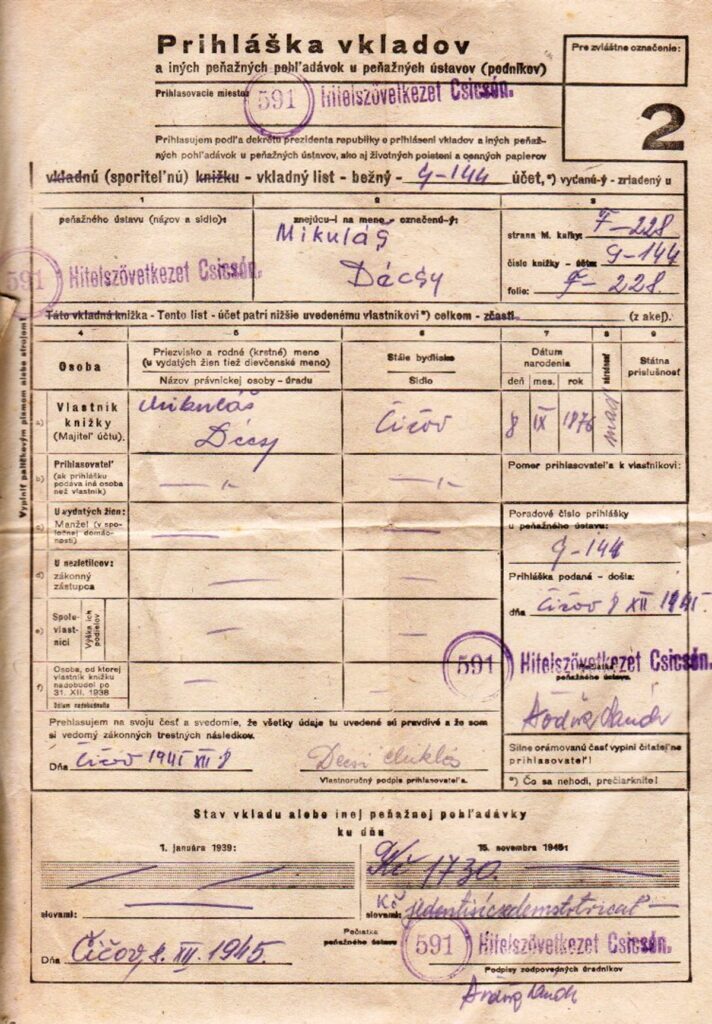 Prihláška vkladov
a iných peňažných pohľadávok u peňažných ústavov (podnikov)
Pre zvláštne označenie:
Prihlasovacie miesto:
591 Hitelszövetkezet Csicsón.
2
Prihlasujem podľa dekrétu prezidenta republiky o prihlásení vkladov a iných peňaž-
ných pohľadávok u peňažných ústavov, ako aj životných poistení a cenných papierov
vkladnú (sporiteľnú) knižku - vkladný list - bežný - G-144 účet,*) vydanú-ý - zriadený u
1 2 3
peňažného ústavu (názov a sídlo):
znejúcu-i na meno - označenú-ý:
Mikuláš
Décsy
strana hl. knihy: F-228
číslo knižky - účtu: G-144
folio: F-228
591 Hitelszövetkezet Csicsón.
Táto vkladná knižka - Tento list - účet patrí nižšie uvedenému vlastníkovi*) celkom - zčasti (z akej).
Vyplniť paličkovým písmom alebo strojom!
4 5 6 7 8 9
Osoba
Priezvisko a rodné (krstné) meno
(u vydatých žien tiež dievčenské meno)
Názov právnickej osoby - úradu
Stále bydlisko
Sídlo
Dátum
narodenia
deň mes. rok
národnosť
Štátna
príslušnosť
a) Vlastník
knižky
(Majiteľ účtu).
Mikuláš
Décsy
Čičov
8 IX 1876
maď
b) Prihlasovateľ
(ak prihlášku
podáva iná osoba
než vlastník)
— " —
— " —
Pomer prihlasovateľa k vlastníkovi:
c) U vydatých žien:
Manžel (v spo-
ločnej domác-
nosti)
d) U nezletilcov:
zákonný
zástupca
e) Spolu-
vlast-
níci
Výška ich
podielov
f) Osoba, od ktorej
vlastník knižku
nadobudol po
31. XII. 1938
Dátum nadobudnutia
Poradové číslo prihlášky
u peňažného ústavu:
G-144
Prihláška podaná - došla:
dňa Čičov 8 XII 1945.
591 Hitelszövetkezet Csicsón.
peňažného ústavu.
Prehlasujem na svoju česť a svedomie, že všetky údaje tu uvedené sú pravdivé a že som
si vedomý zákonných trestných následkov.
Dňa Čičov 1945 XII 8
Décsi Miklós
Vlastnoručný podpis prihlasovateľa.
Silne orámovanú časť vyplní čitateľne
prihlasovateľ!
*) Čo sa nehodí, prečiarknite!
Stav vkladu alebo inej peňažnej pohľadávky
ku dňu
1. januára 1939:
15. novembra 1945:
Kč 1730.
slovami:
slovami: Kč jedentisícsedemstotricať —
Dňa Čičov, 8. XII. 1945.
Pečiatka
peňažného ústavu
591 Hitelszövetkezet Csicsón.
Podpisy zodpovedných úradníkov